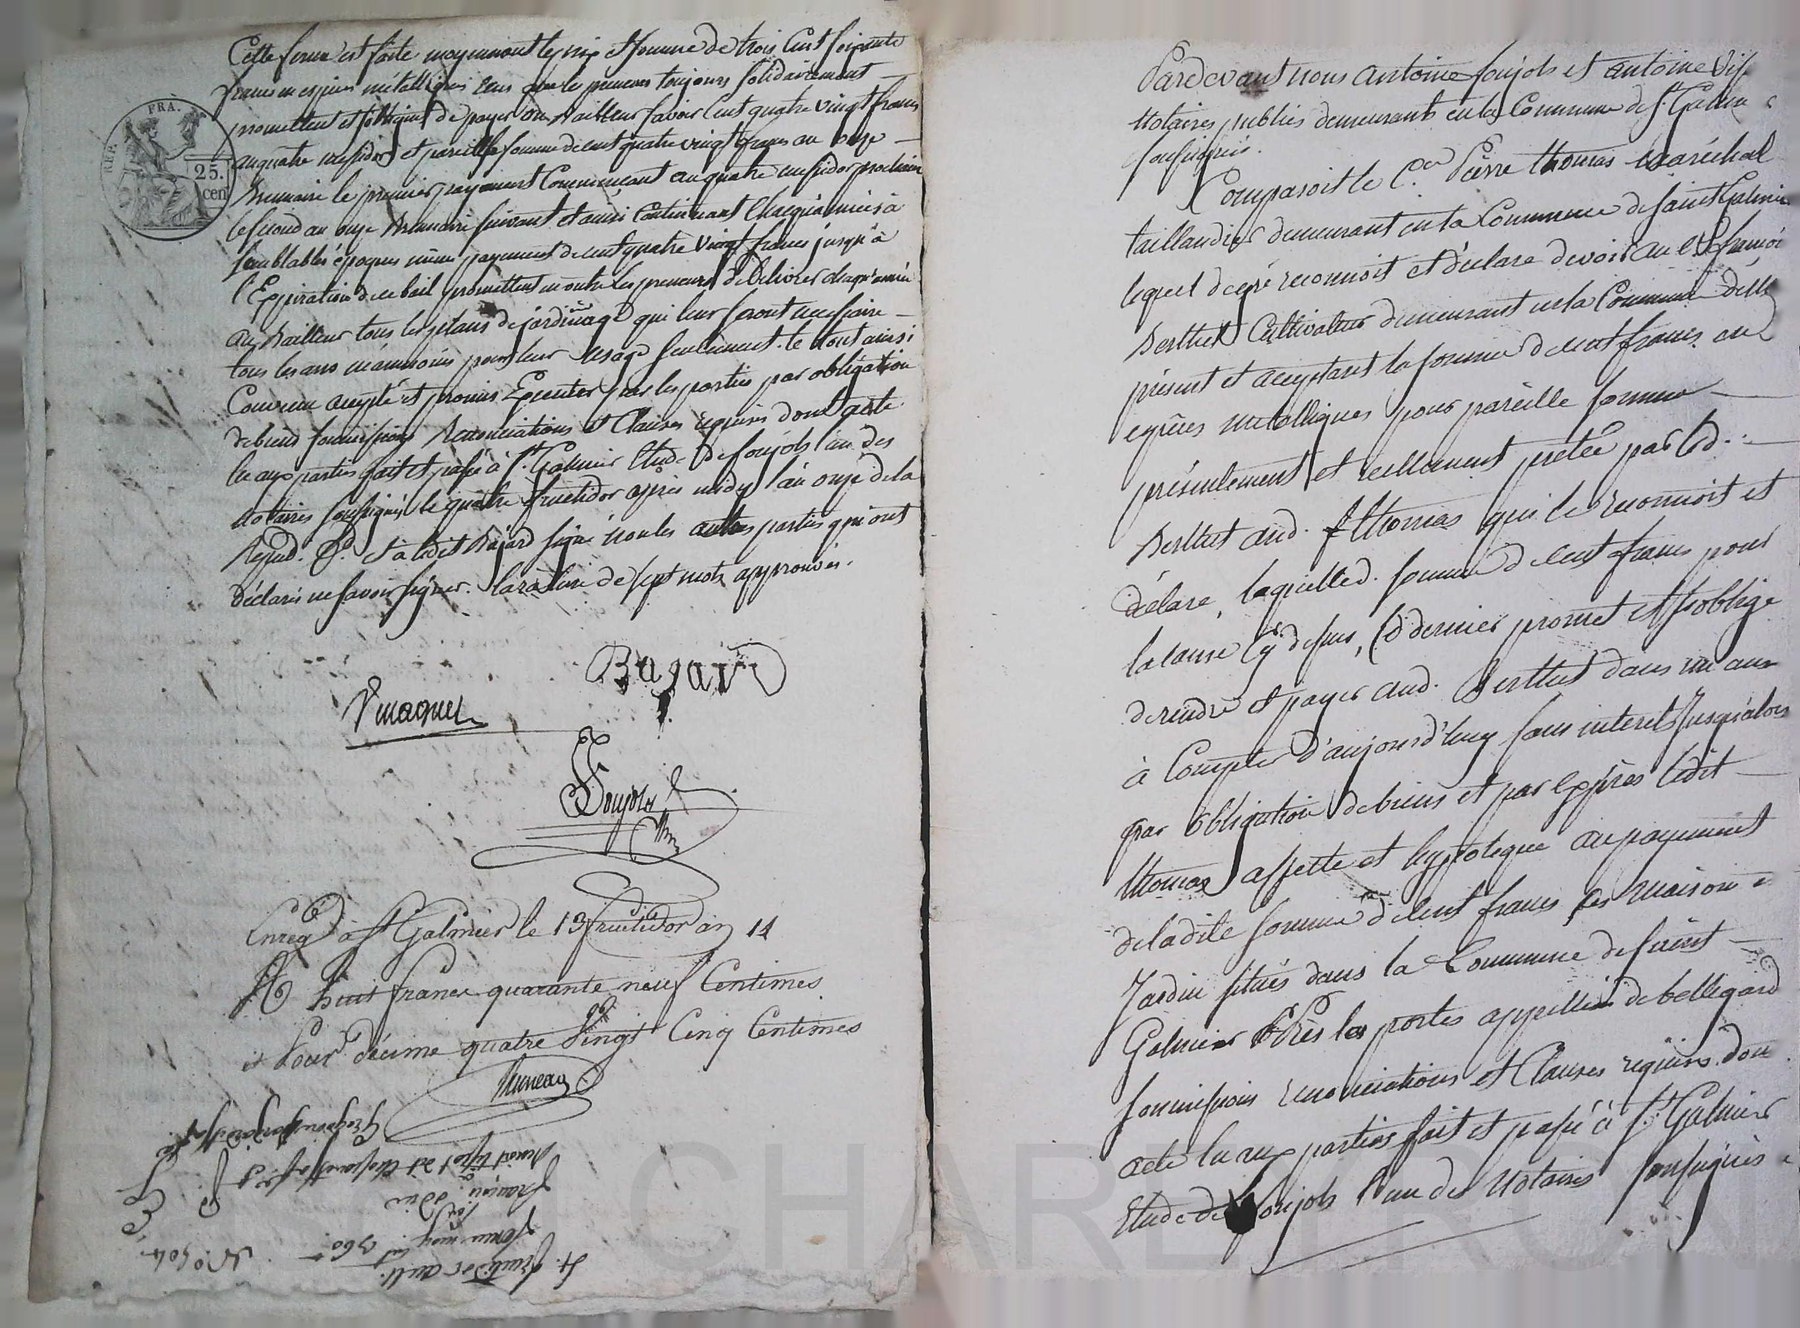 REP. FRA.
25. cen
Cette ferme est faite moyennant le prix et somme de trois cent soixante
francs en espèces métalliques sous que les preneurs toujours solidairement
promettent et s'obligent de payer au Bailleur savoir cent quatre vingt francs
au quatre messidor et pareille somme de cent quatre vingt francs au onze
Brumaire le premier payement Commencant au quatre messidor prochain
le second au onze Brumaire suivant et ainsi Continuant chaque année à
semblables époques même payement de cent quatre vingt francs jusqu'à
l'Expiration de ce bail promettent en outre les preneurs de Délivrer chaque année
au Bailleur tous les plans de jardinage qui leur seront necessaire
tous les ans néanmoins pour leur usage seulement. le tout ainsi
Convenu accepté et promis Executer par les parties par obligation
de biens soumissions Renonciations et Clauses requises dont acte
lu aux parties fait et passé à St. Galmier Etude de Soujols l'un des
Notaires soussignés le quatre fructidor après midy l'an onze de la
Repub. f. et a ledit Bajard signé non les autres parties qui ont
déclaré ne savoir signer. la rature de sept mots approuvés.
Bajard
Vinagner
Soujols
Enreg. à St Galmier le 13 fructidor an 11
R. huit francs quarante neuf Centimes
et Pour décime quatre Vingt Cinq Centimes
4. fructidor an 11.
N° 504
360
Pardevant nous Antoine Soujols et antoine
Notaires publics demeurants en la Commune de St. Galmier
soussignés.
Comparoit le C.en Pierre thomas Maréchal
taillandier demeurant en la Commune de Saint Galmier
lequel de gré reconnoit et déclare devoir au C.en francois
Berthet Cultivateur demeurant en la Commune de
présent et acceptant la somme de cent francs en
espèces metalliques pour pareille somme
présentement et réellement pretée par led.
Berthet aud. thomas qui le reconnoit et
déclare, laquelle d. somme de cent francs pour
la cause cy dessus, led dernier promet et s'oblige
de rendre et payer aud. Berthet dans un an
à Compter d'aujourd'huy sans interets jusqu'alors
par obligation de biens et par exprès ledit
thomas affecte et hypoteque au payement
de ladite somme de cent francs ses maison et
Jardin situés dans la Commune de saint
Galmier Près les portes appellées de bellegard
soumissions renonciations et Clauses requises dont
acte lu aux parties fait et passé à St. Galmier
Etude de Soujols l'un des Notaires soussignés
CHARETRON